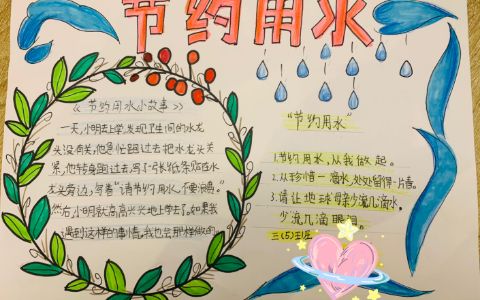 节约用水
《节约用水小故事》
一天,小明去上学,发现卫生间的水龙
头没有关,他急忙跑过去把水龙头关
紧,他转身跑过去,写了一张纸条贴在水
龙头旁边,写着"请节约用水,不要浪费。"
然后小明就高高兴兴地上学去了。如果我
遇到这样的事情,我也会那样做的。
"节约用水"
1.节约用水,从我做起。
2.从珍惜一滴水,处处留得一片情。
3.请让地球母亲少流几滴水。
少流几滴眼泪。
三(5)班